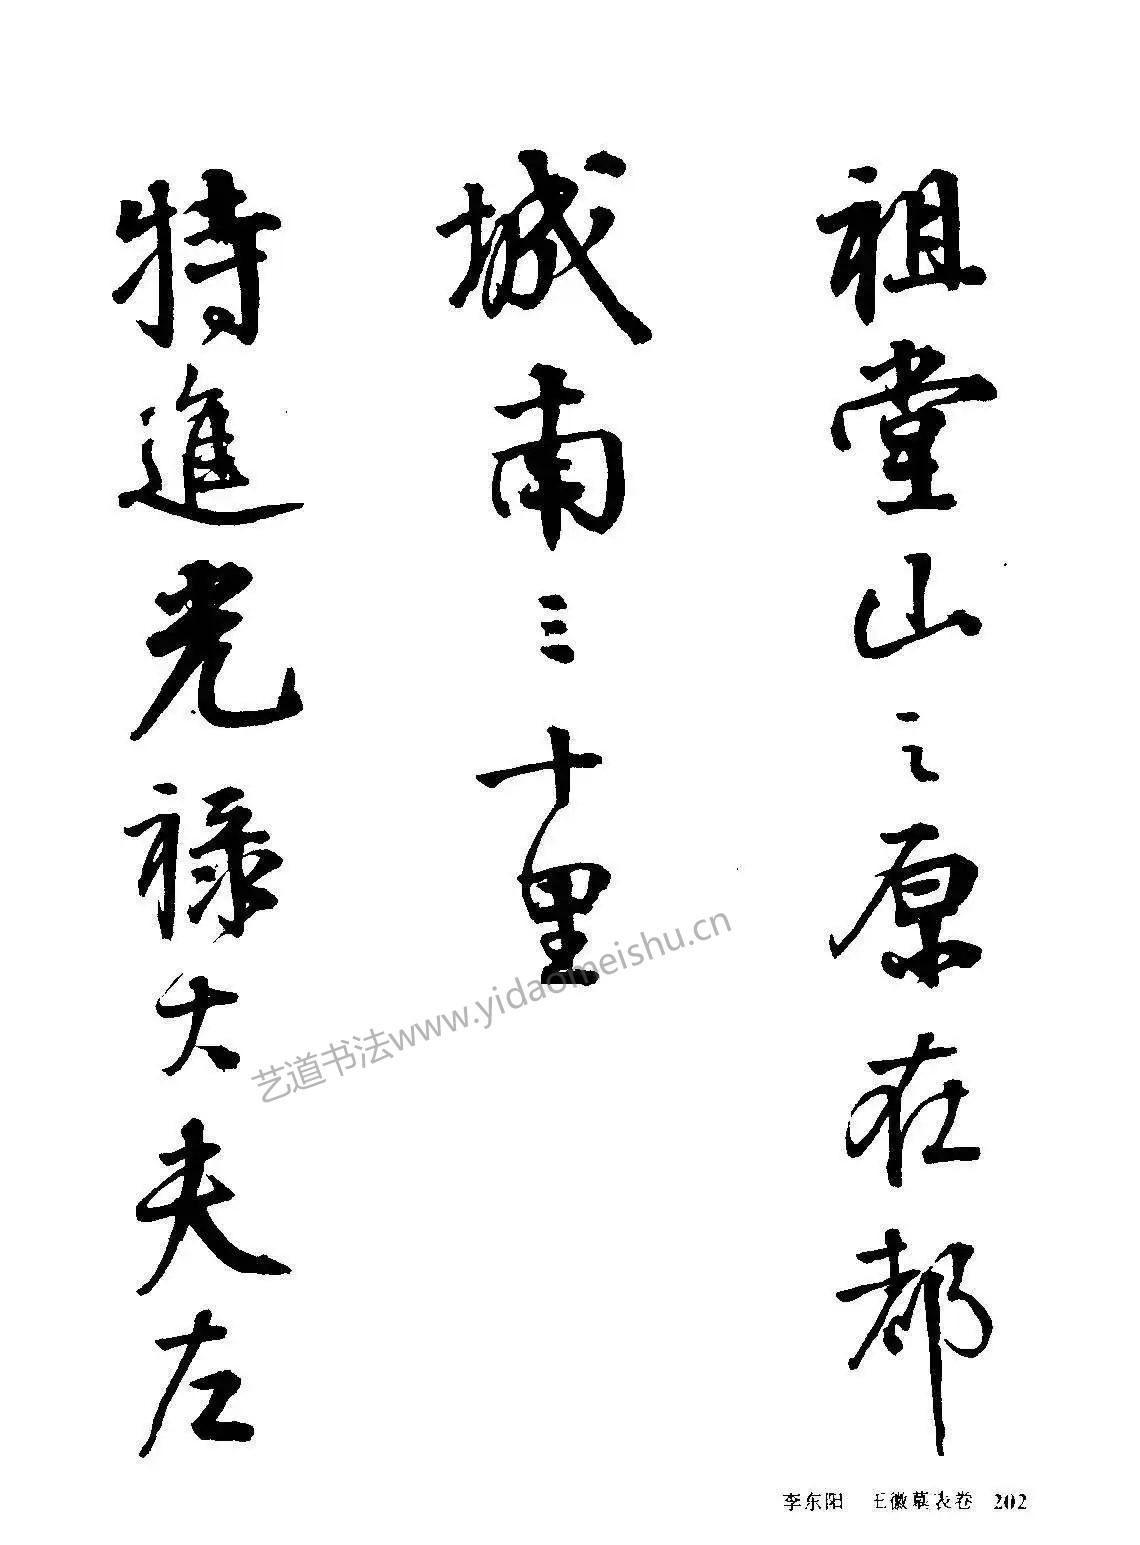 祖堂山之原在都
城南三十里
特進光祿大夫左
艺道书法www.yidaomeishu.cn
李东阳 王徽墓表卷 202